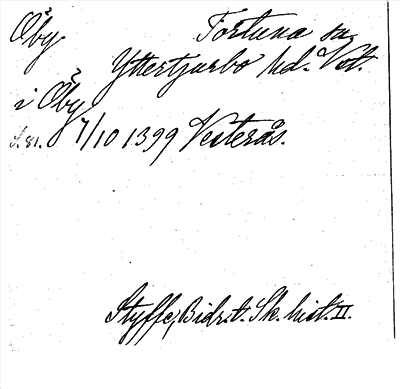 Öby. Fortuna sn.
Yttertjurbo hd. Vstm.
i Öby
s. 81. 7/10 1399 Vesterås.
Styffe, Bidr. t. Sk. hist. II.